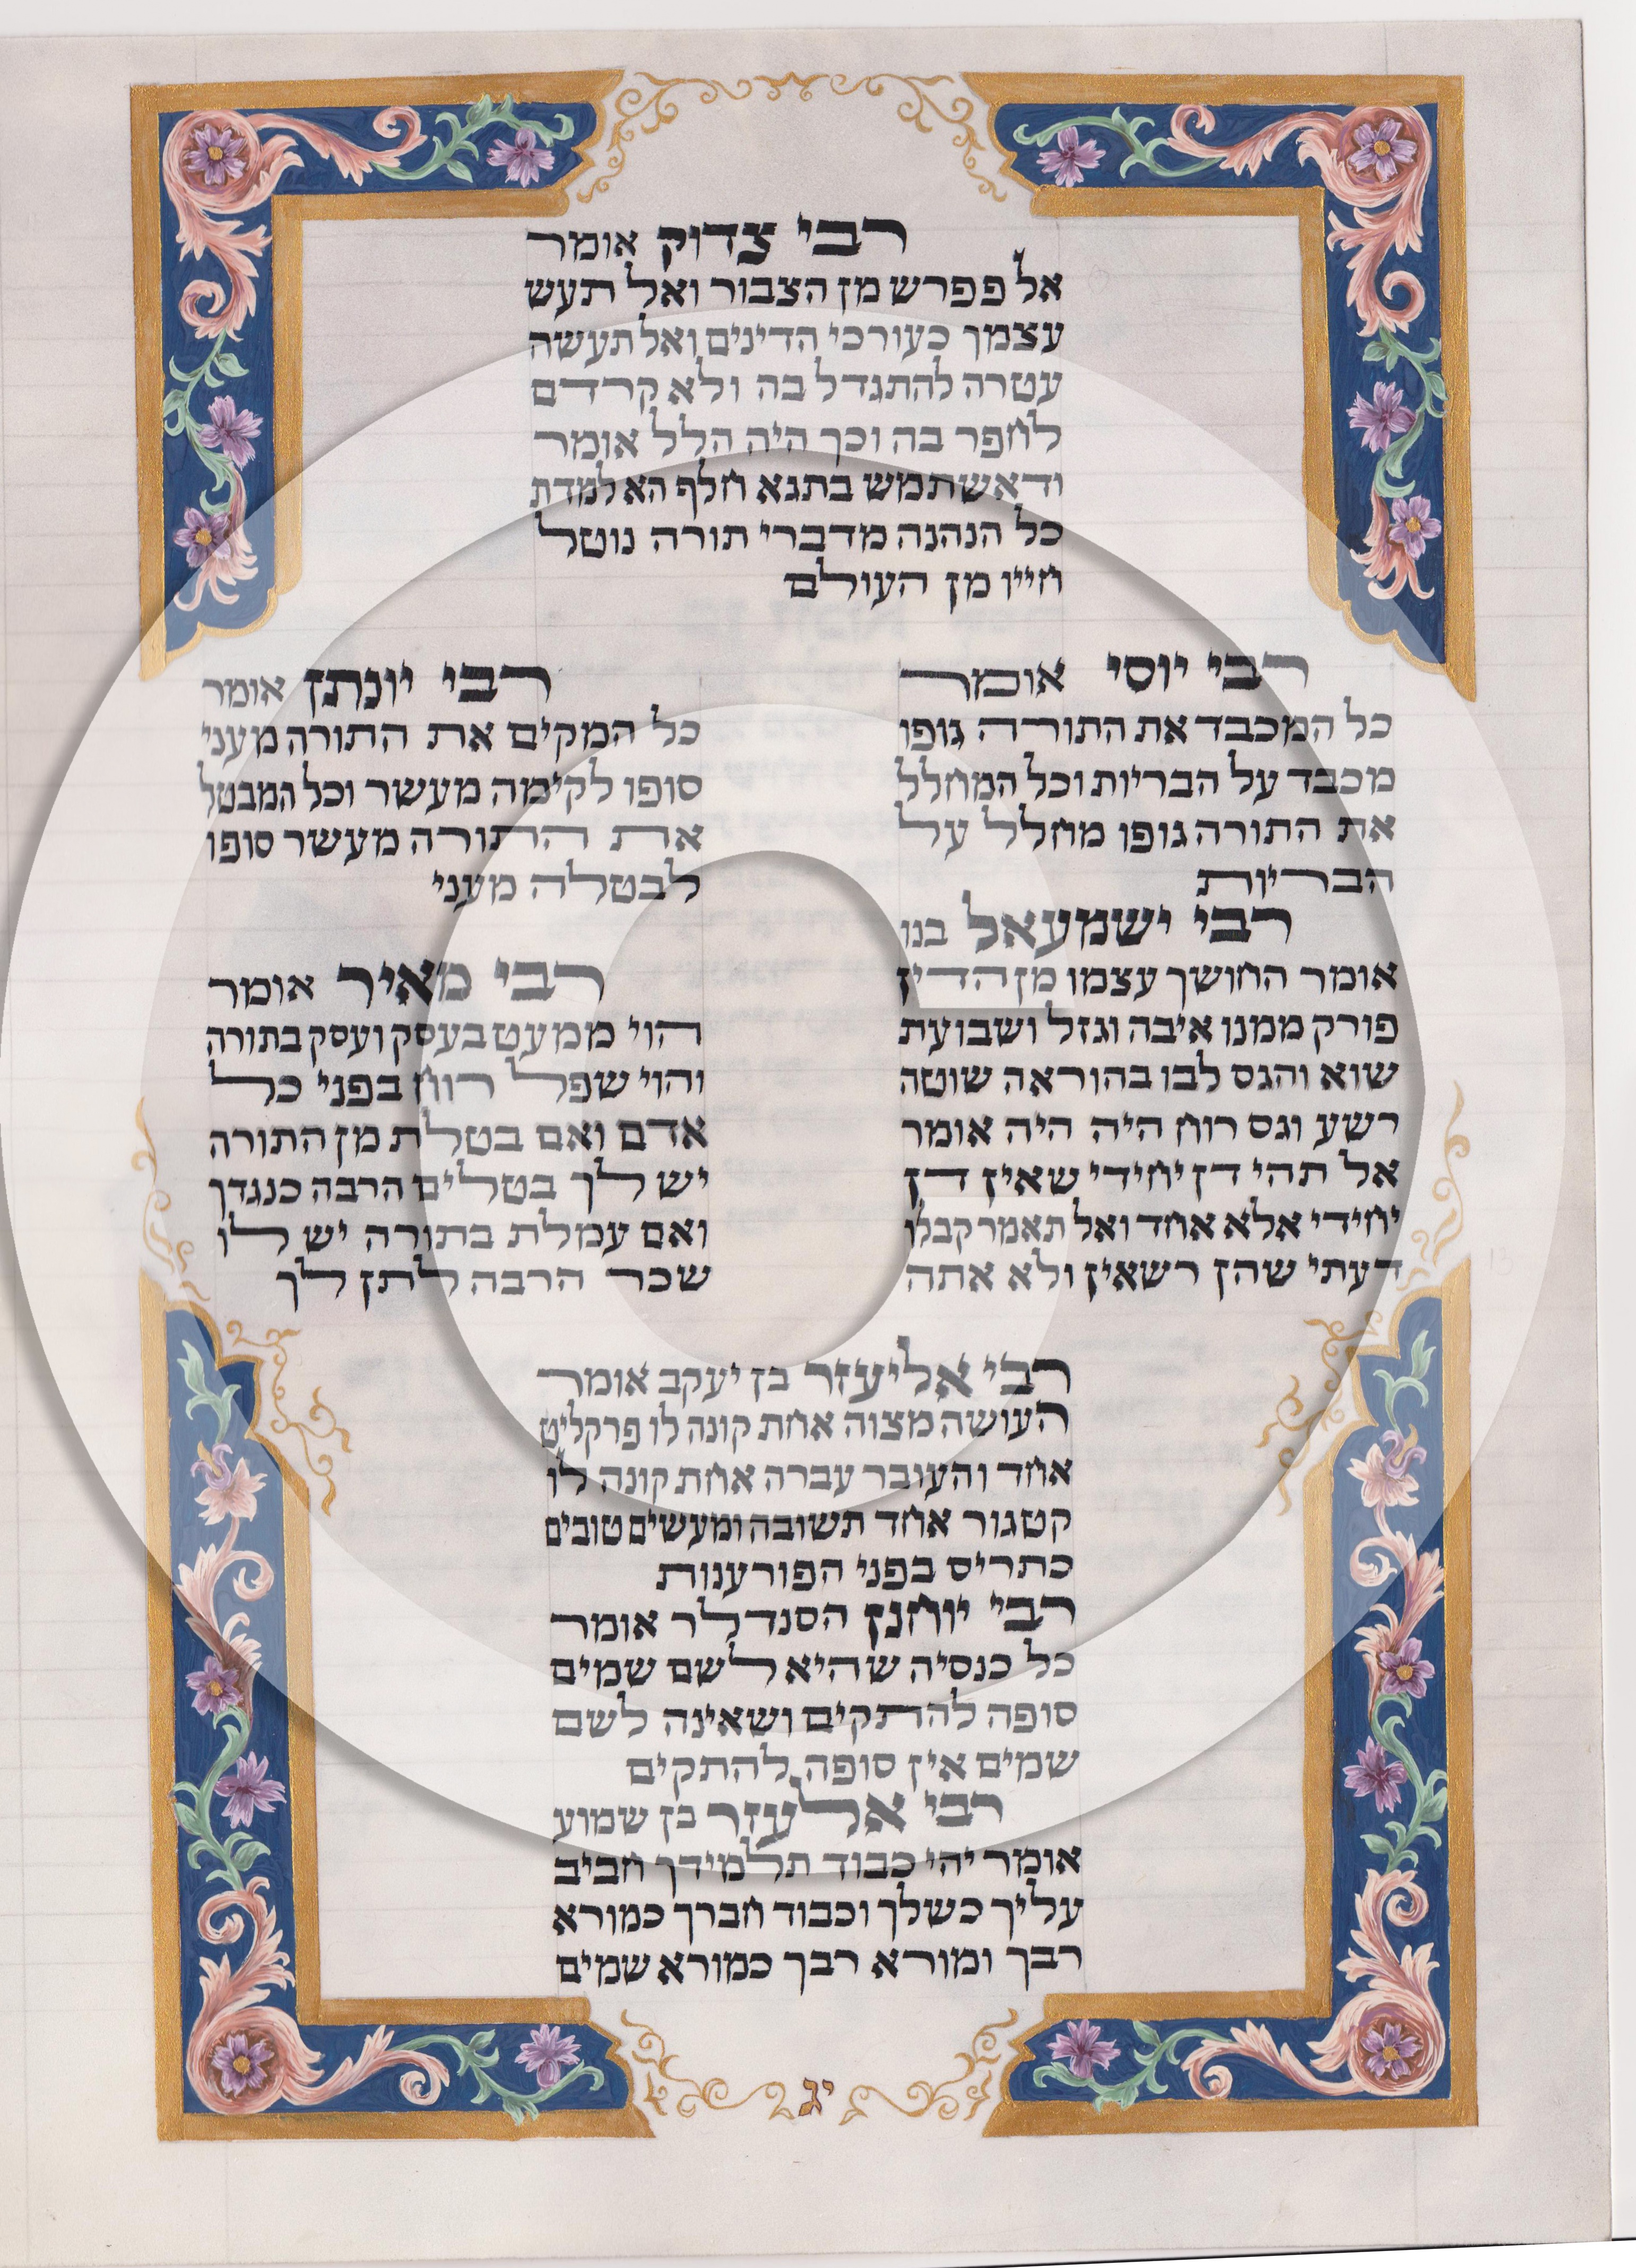 רבי צדוק אומר
אל פפרש מן הצבור ואל תעש
עצמך כעורכי הדינים ואל תעשה
עטרה להתגדל בה ולא קרדם
לחפר בה וכך היה הלל אומר
ודאשתמש בתגא חלף הא למדת
כל הנהנה מדברי תורה נוטל
חייו מן העולם
רבי יוסי אומר
כל המכבד את התורה גופו
מכבד על הבריות וכל המחלל
את התורה גופו מחלל על
הבריות
רבי ישמעאל בנו
אומר החושך עצמו מן הדין
פורק ממנו איבה וגזל ושבועת
שוא והגס לבו בהוראה שוטה
רשע וגס רוח היה היה אומר
אל תהי דן יחידי שאין דן
יחידי אלא אחד ואל תאמר קבלו
דעתי שהן רשאין ולא אתה
רבי יונתן אומר
כל המקים את התורה מעני
סופו לקימה מעשר וכל המבטל
את התורה מעשר סופו
לבטלה מעני
רבי מאיר אומר
הוי ממעט בעסק ועסק בתורה
והוי שפל רוח בפני כל
אדם ואם בטלת מן התורה
יש לך בטלים הרבה כנגדך
ואם עמלת בתורה יש לו
שכר הרבה לתן לך
רבי אליעזר בן יעקב אומר
העושה מצוה אחת קונה לו פרקליט
אחד והעובר עברה אחת קונה לו
קטגור אחד תשובה ומעשים טובים
כתריס בפני הפורענות
רבי יוחנן הסנדלר אומר
כל כנסיה שהיא לשם שמים
סופה להתקים ושאינה לשם
שמים אין סופה להתקים
רבי אלעזר בן שמוע
אומר יהי כבוד תלמידך חביב
עליך כשלך וכבוד חברך כמורא
רבך ומורא רבך כמורא שמים
יג